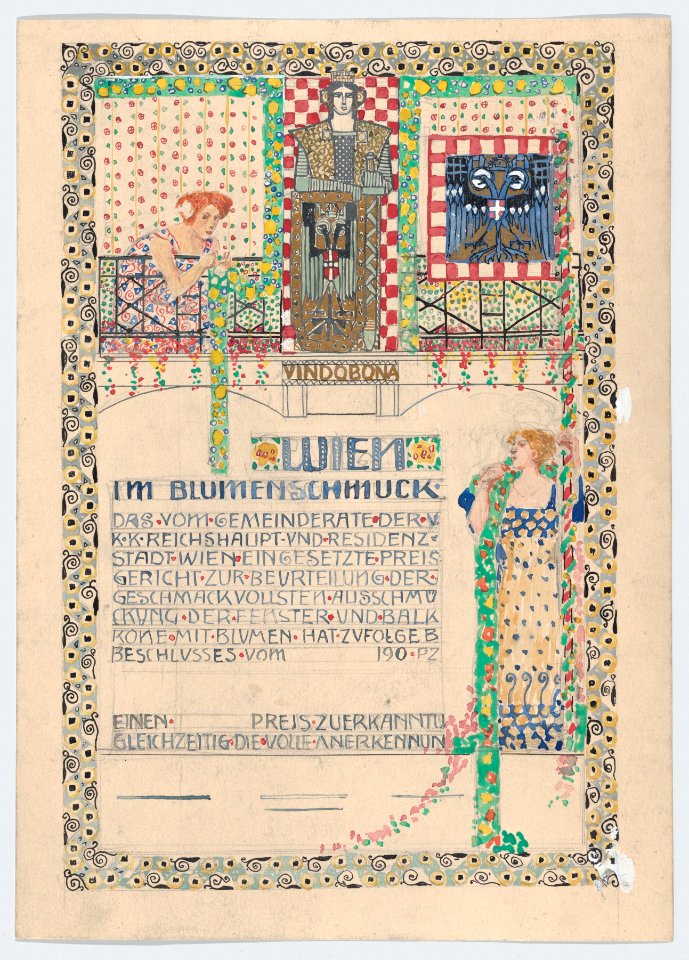 VINDOBONA
WIEN
IM BLUMENSCHMUCK·
DAS·VOM·GEMEINDERATE·DER·V
K·K·REICHSHAUPT·UND·RESIDENZ-
STADT·WIEN·EINGESETZTE·PREIS
GERICHT·ZUR·BEURTEILUNG·DER·
GESCHMACKVOLLSTEN·AUSSCHMÜ
CKUNG·DER·FENSTER·UND·BALK
KONE·MIT·BLUMEN·HAT·ZUFOLGE B
BESCHLUSSES·VOM 190·PZ
EINEN· PREIS·ZUERKANNTU
GLEICHZEITIG·DIE·VOLLE·ANERKENNUN